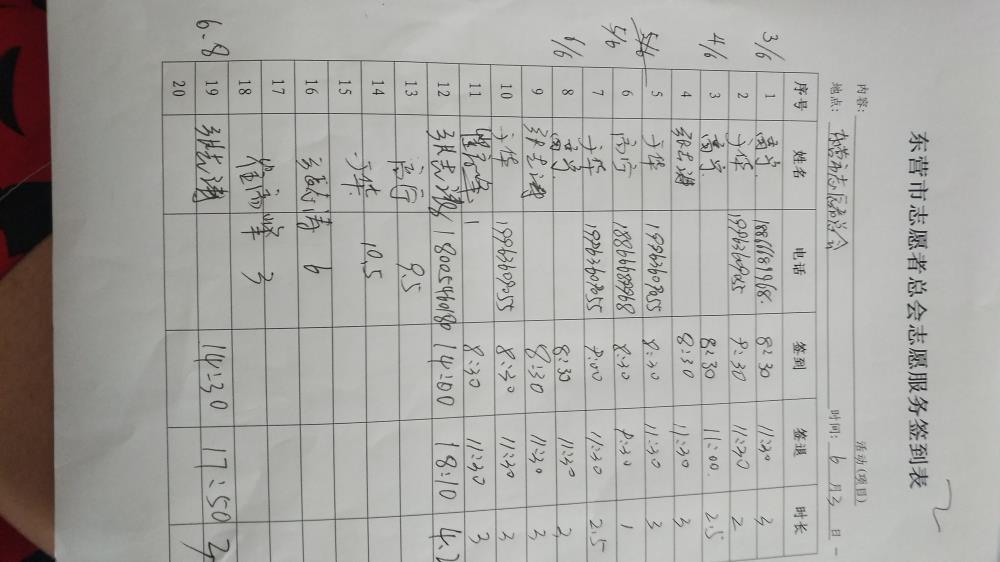 东营市志愿者总会志愿服务签到表
内容: 活动(项目)
地点: 东营市志愿者总会 时间: 6 月 3 日
序号 姓名 电话 签到 签退 时长
3/6 1 高宁 8:30 11:30 3
2 于华 19963609055 9:30 11:30 2
4/6 3 高宁 8:30 11:00 2.5
4 张志涛 8:30 11:30 3
5/6 5 于华 19963609055 8:30 11:30 3
5/6 6 高宁 8:30 9:30 1
7 于华 19963609055 9:00 11:30 2.5
6/6 8 高宁 8:30 11:30 3
9 张志涛 8:30 11:30 3
10 于华 19963609055 8:30 11:30 3
11 8:30 11:30 3
12 张志涛 18005460180 14:00 18:10 4.2
13 高宁 9.5
14 于华 10.5
15
16 张志涛 6
17
18 3
6.8 19 张志涛 14:30 17:50
20